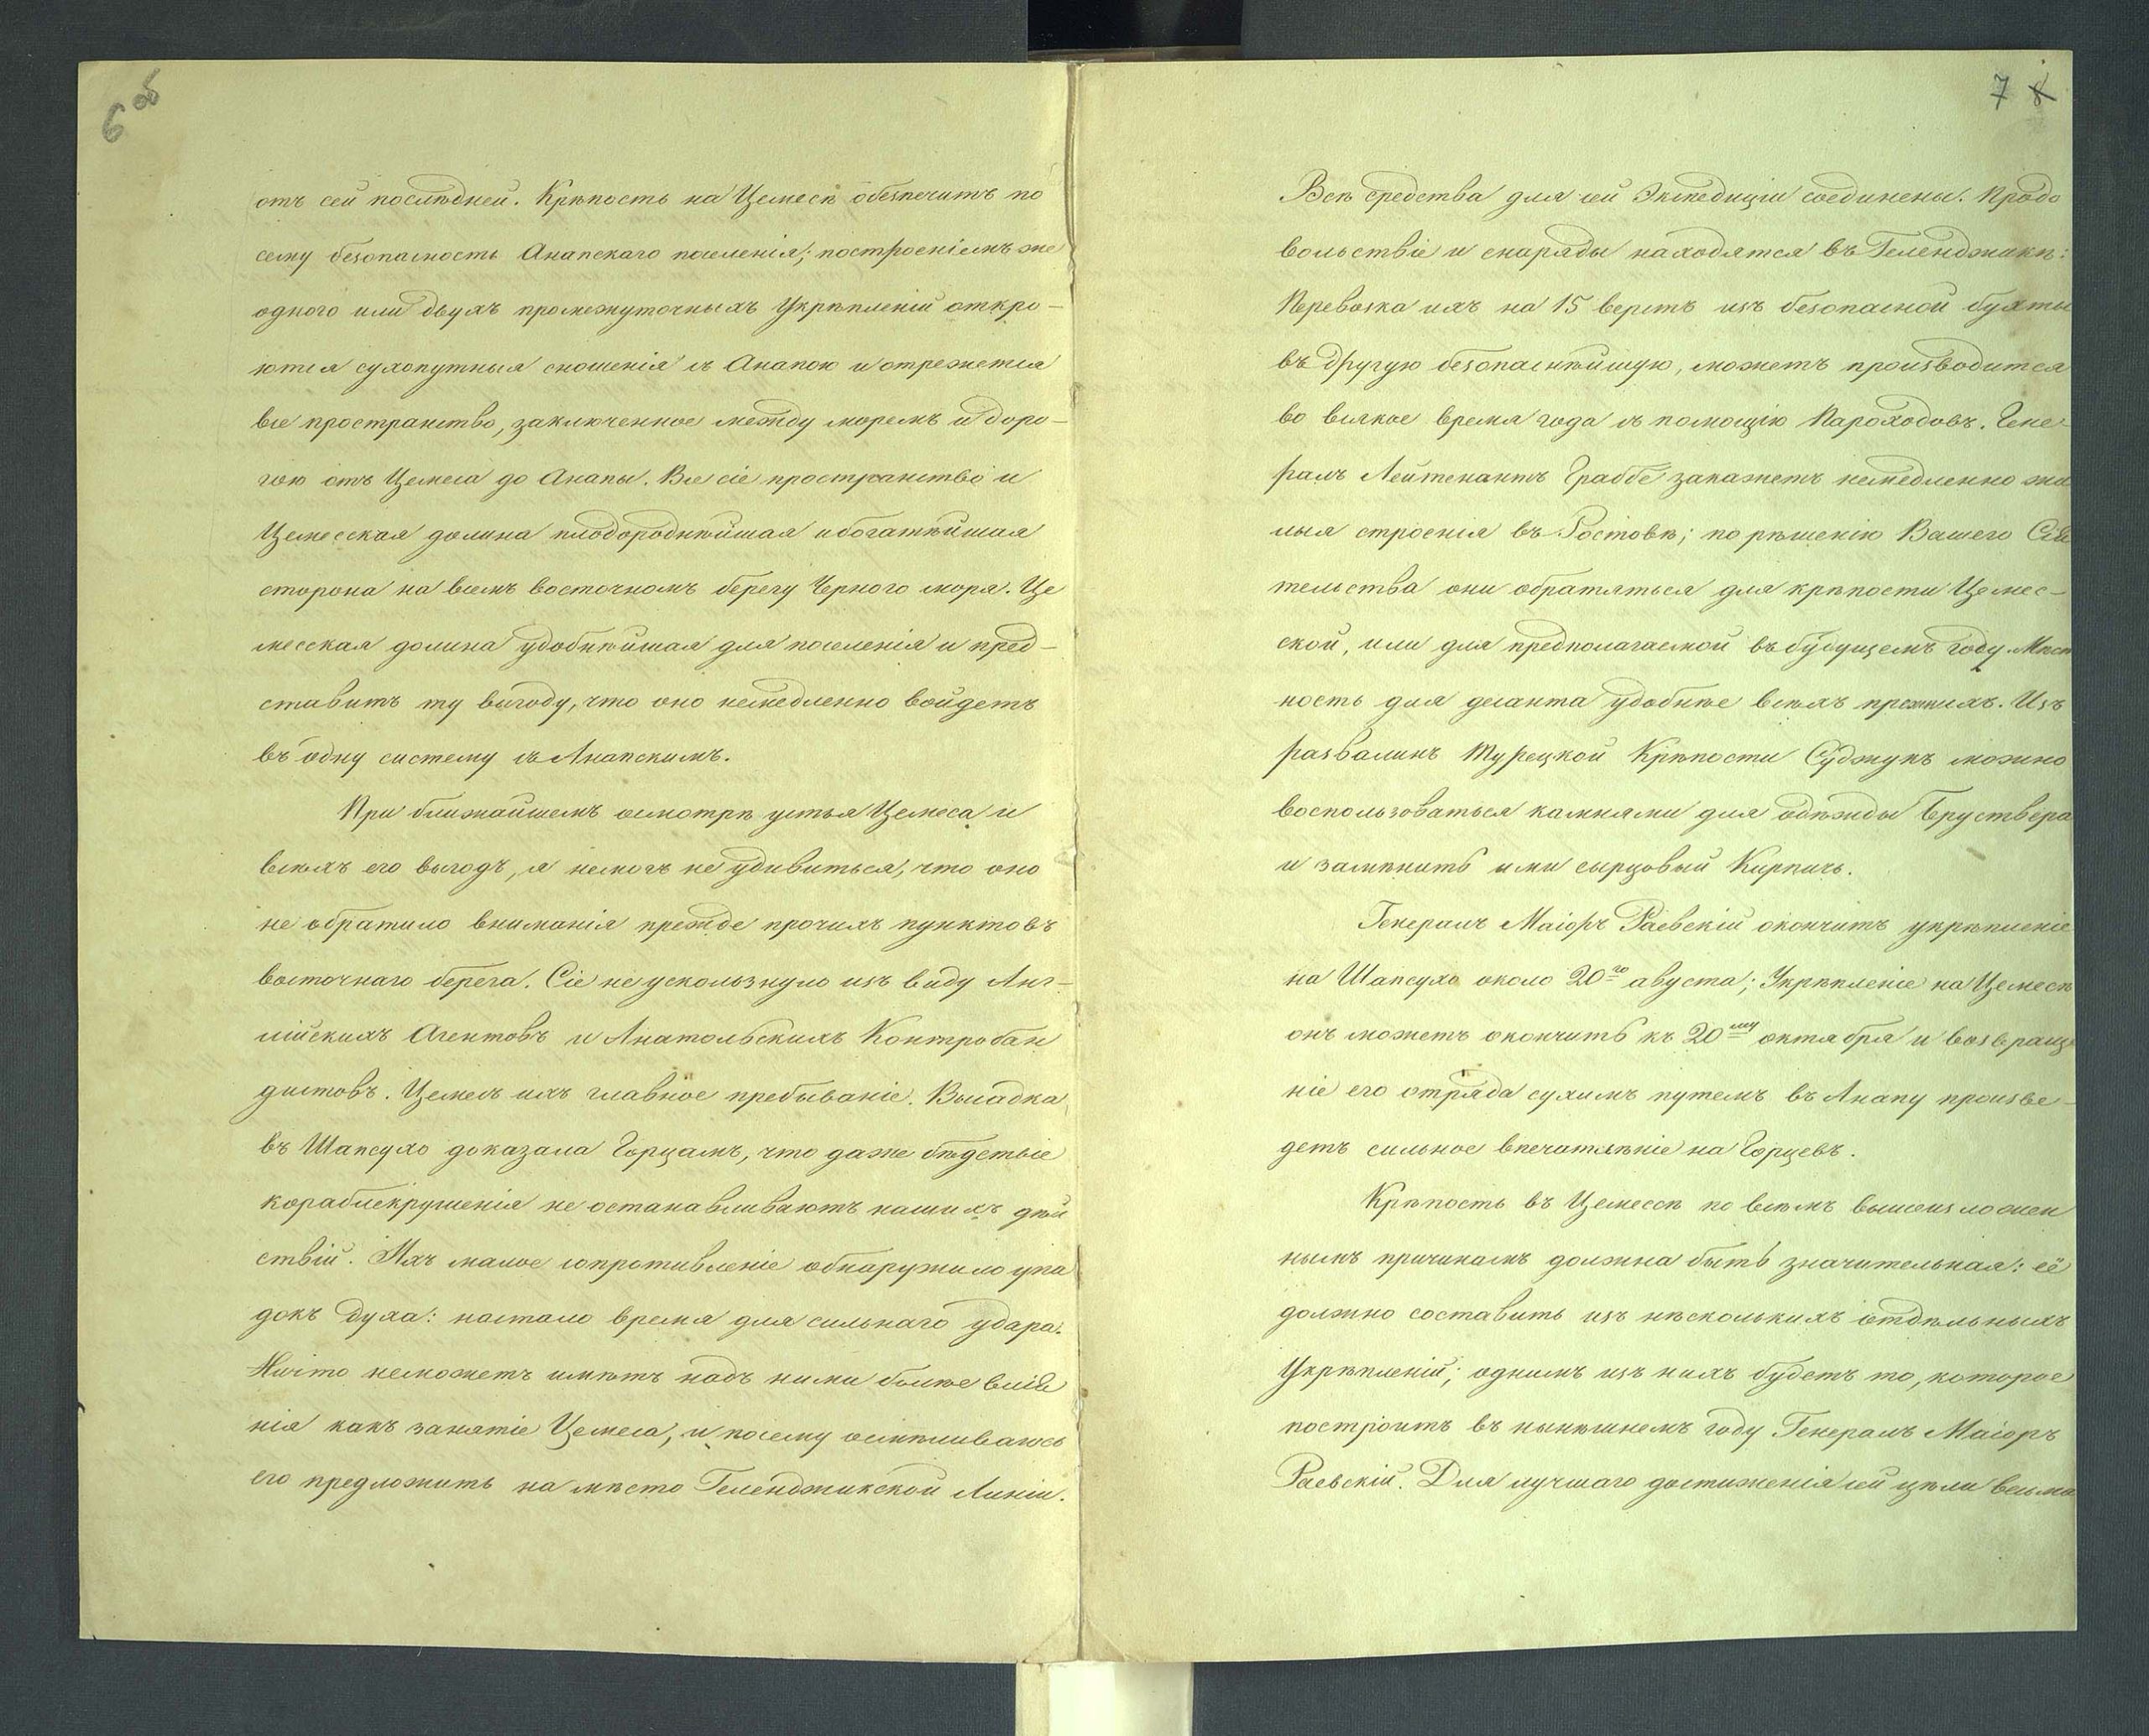 6 об
отъ сей послѣдней. Крѣпость на Цемесѣ обезпечитъ по
сему безопасность Анапскаго поселенія; построеніемъ же
одного или двухъ промежуточныхъ Укрѣпленій откро-
ются сухопутныя сношенія съ Анапою и отрежется
все пространство, заключенное между моремъ и доро-
гою отъ Цемеса до Анапы. Все сіе пространство и
Цемесская долина плодороднѣйшая и богатѣйшая
сторона на всемъ восточномъ берегу Черного моря. Це
месская долина удобнѣйшая для поселенія и пред-
ставитъ ту выгоду, что оно немедленно войдетъ
въ одну систему съ Анапскимъ.
При ближайшемъ осмотрѣ устья Цемеса и
всѣхъ его выгодъ, я немогъ не удивиться, что оно
не обратило вниманія прежде прочихъ пунктовъ
восточнаго берега. Сіе не ускользнуло изъ виду Анг-
лійскихъ Агентовъ и Анатольскихъ Контробан
дистовъ. Цемесъ ихъ главное пребываніе. Высадка
въ Шапсухо доказала Горцамъ, что даже бѣдствіе
кораблекрушенія не останавливаютъ нашихъ дѣй
ствій. Ихъ малое сопротивленіе обнаружило упа
докъ духа: настало время для сильнаго удара.
Ничто неможетъ имѣть надъ ними болѣе влія
нія какъ занятіе Цемеса, и посему осмѣливаюсь
его предложить на мѣсто Геленджикской Линіи.
7 8
Всѣ средства для сей Экспедиціи соединены. Продо
вольствіе и снаряды находятся въ Геленджикѣ:
Перевозка ихъ на 15 верстъ изъ безопасной бухты
въ другую безопаснѣйшую, можетъ производится
во всякое время года съ помощію Пароходовъ. Гене-
ралъ Лейтенантъ Граббе закажетъ немедленно жи
лыя строенія въ Ростовѣ; по рѣшенію Вашего Сія
тельства они обратяться для крѣпости Цемес-
ской, или для предполагаемой въ будущемъ году. Мѣст
ность для десанта удобнѣе всѣхъ прежнихъ. Изъ
развалинъ Турецкой Крѣпости Суджукъ можно
воспользоваться камнями для одѣжды Бруствера
и замѣнить ими сырцовый Кирпичь.
Генералъ Маіоръ Раевскій окончитъ укрѣпленіе
на Шапсухо около 20го августа; Укрѣпленіе на Цемесѣ
онъ можетъ окончить къ 20му октября и возвраще
ніе его отряда сухимъ путемъ въ Анапу произве-
детъ сильное впечатлѣніе на Горцевъ.
Крѣпость въ Цемессѣ по всѣмъ вышеизложен
нымъ причинамъ должна быть значительная: её
должно составить изъ нѣсколькихъ отдѣльныхъ
Укрѣпленій; однимъ изъ нихъ будетъ то, которое
построитъ въ нынѣшнемъ году Генералъ Маіоръ
Раевскій. Для лучшаго достиженія сей цѣли весьма